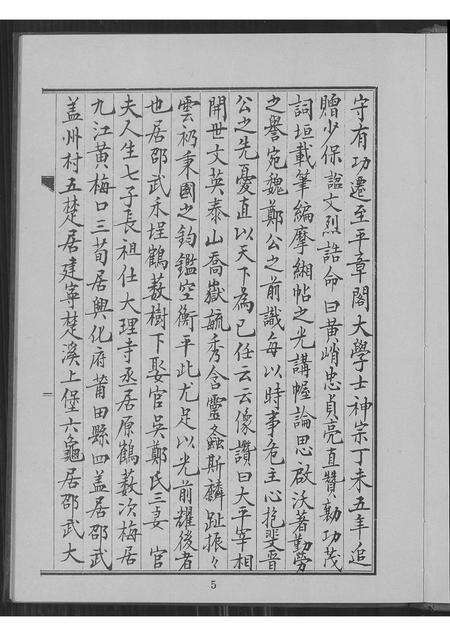 守有功遷至平章閣大學士神宗丁未五年追
贈少保諡文烈誥命曰黃峭忠貞亮直贊勷功茂
詞垣載筆編摩緗帖之光講幄論思啟沃著勤勞
之譽宛魏鄭公之前識每以時事危主心抱晋
公之先憂直以天下為己任云云像讚曰大平宰相
開世文英泰山喬嶽毓秀含靈螽斯麟趾振々
雲礽秉國之鈞鑑空衡平此尤足以光前耀後者
也居邵武禾坪鶴薮樹下娶官吳鄭氏三妻 官
夫人生七子長祖仕大理寺丞居原鶴薮次梅居
九江黃梅口三荀居興化府莆田縣四盖居邵武
盖州村五楚居建寧楚溪上堡六龜居邵武大
5